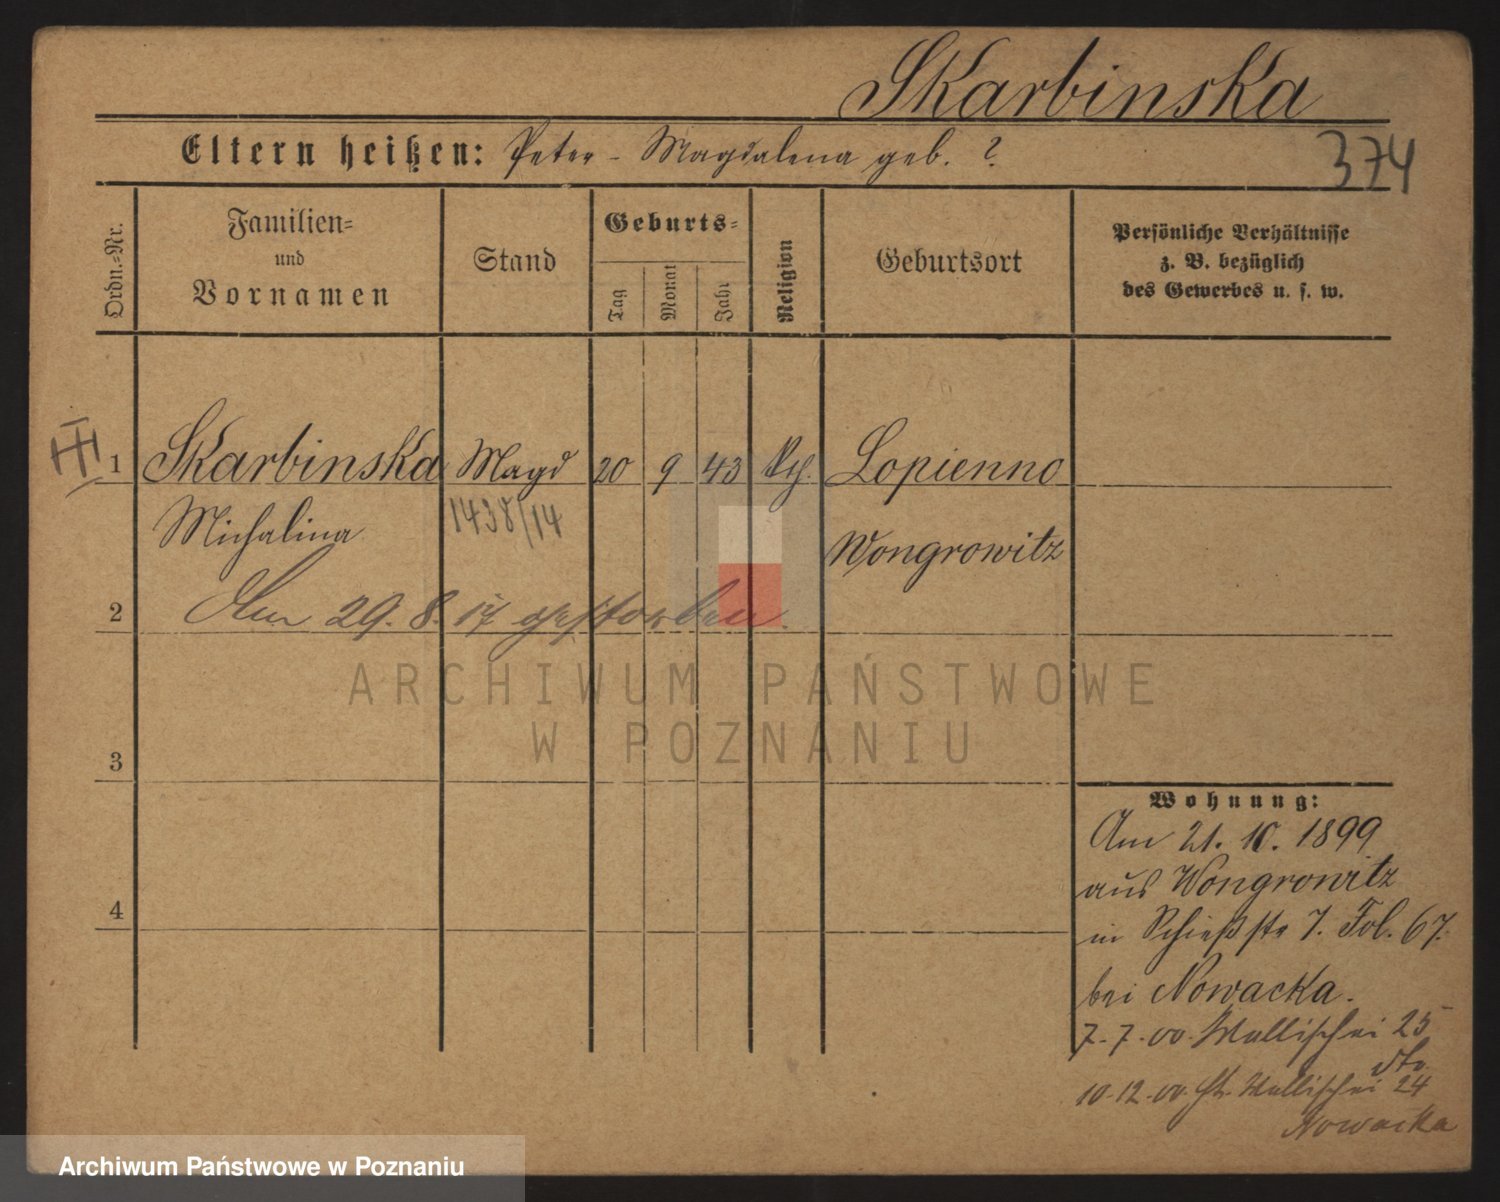 Skarbinska
Eltern heißen: Peter - Magdalena geb. ?
374
Ordn.-Nr.
Familien-
und
Vornamen
Stand
Geburts-
Tag
Monat
Jahr
Religion
Geburtsort
Persönliche Verhältnisse
z. B. bezüglich
des Gewerbes u. s. w.
1 Skarbinska Magd 20 9 43 Lopienno
Michalina 1438/14 Wongrowitz
2 Am 29.8.17 gestorben.
ARCHIWUM PAŃSTWOWE
W POZNANIU
3
4
Wohnung:
Am 21. 10. 1899
aus Wongrowitz
in Schießstr 7. Fol. 67.
bei Nowacka.
7.-7.-00. Wallischei 25
dto
10.-12.-00. Wallischei 24
Nowacka
Archiwum Państwowe w Poznaniu